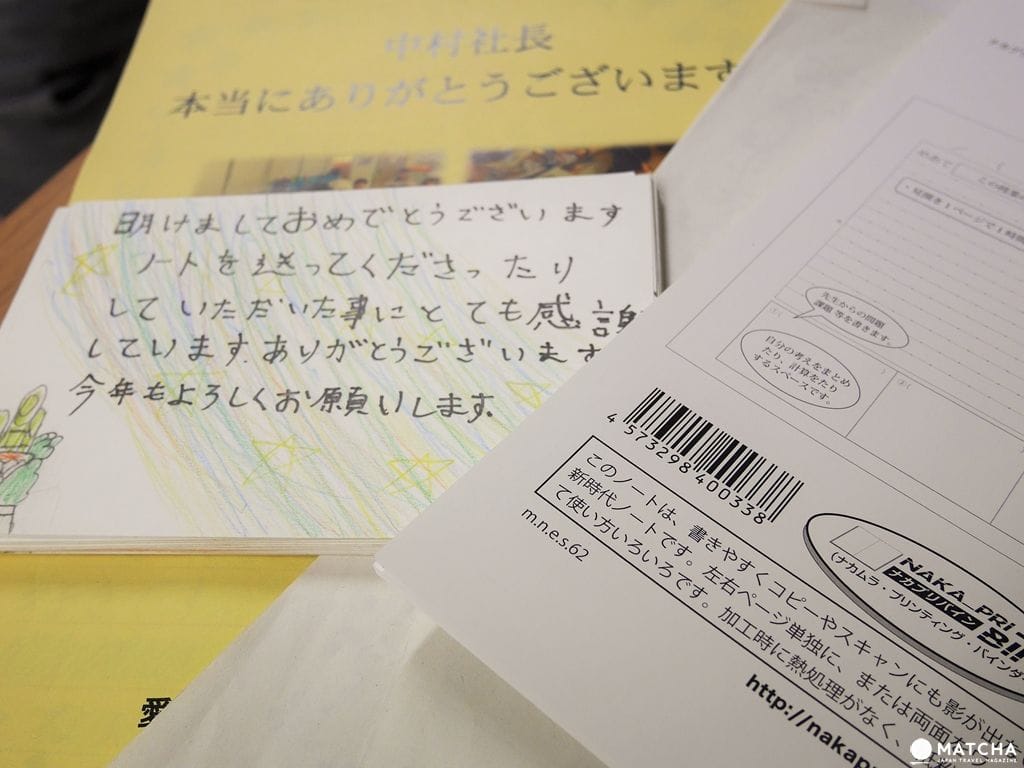 中村社長
本当にありがとうございます
明けましておめでとうございます
ノートを送ってくださったり
していただいた事にとても感謝
しています。ありがとうございます
今年もよろしくお願いします。
・見開き1ページで1時間
先生からの問題
課題等を書きます。
自分の考えをまとめ
たり、計算をたり
するスペースです。
4 573298 400338
このノートは、書きやすくコピーやスキャンにも影が出
新時代ノートです。左右ページ単独に、または両面
て使い方いろいろです。加工時に熱処理がなく、
m.n.e.s62
NAKA PRI
ナカプリバイン
(ナカムラ・プリンティング・バインダ
http://nakap
愛
MATCHA
JAPAN TRAVEL MAGAZINE